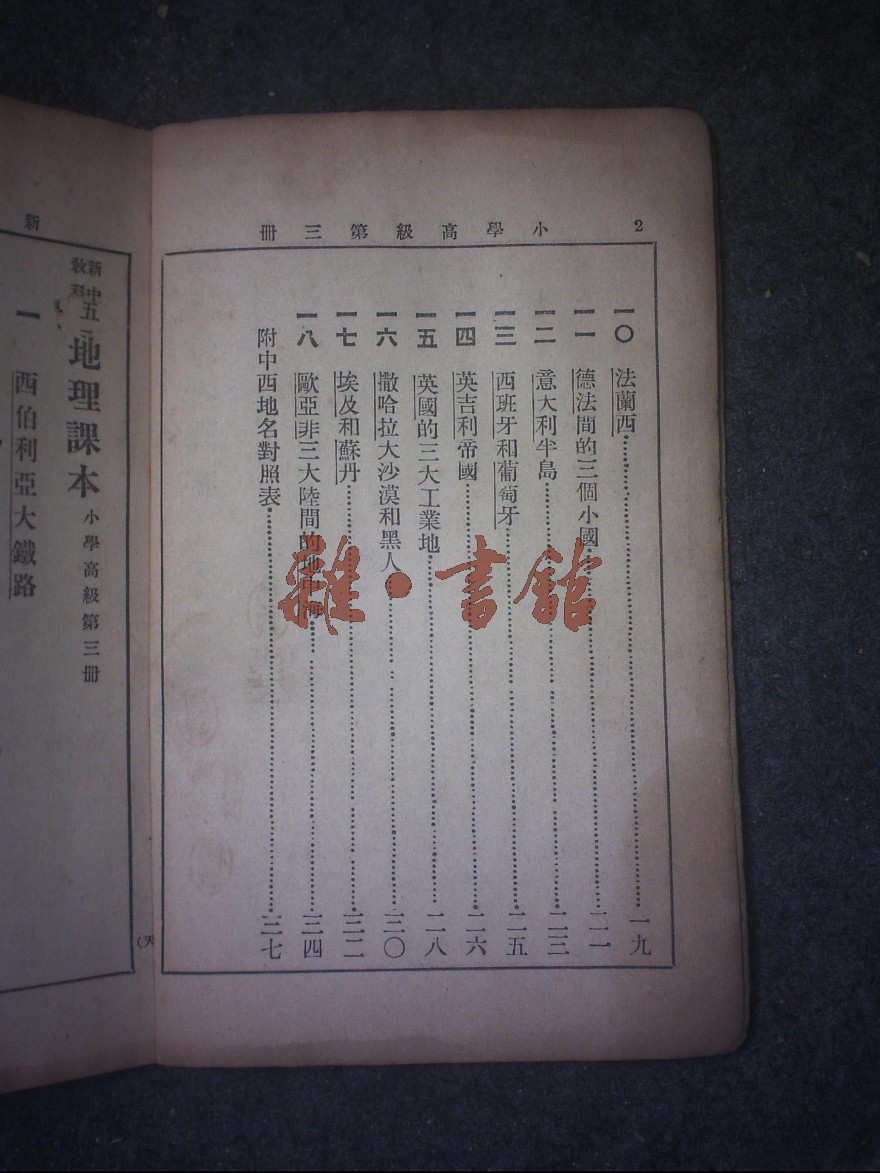 2
小學高級第三冊
一〇 法蘭西 一九
一一 德法間的三個小國 二一
一二 意大利半島 二三
一三 西班牙和葡萄牙 二五
一四 英吉利帝國 二六
一五 英國的三大工業地 二八
一六 撒哈拉大沙漠和黑人 三〇
一七 埃及和蘇丹 三二
一八 歐亞非三大陸間的地中海 三四
附中西地名對照表 三七
雜·書館
新
新中
教科
地理課本 小學高級第三冊
一 西伯利亞大鐵路